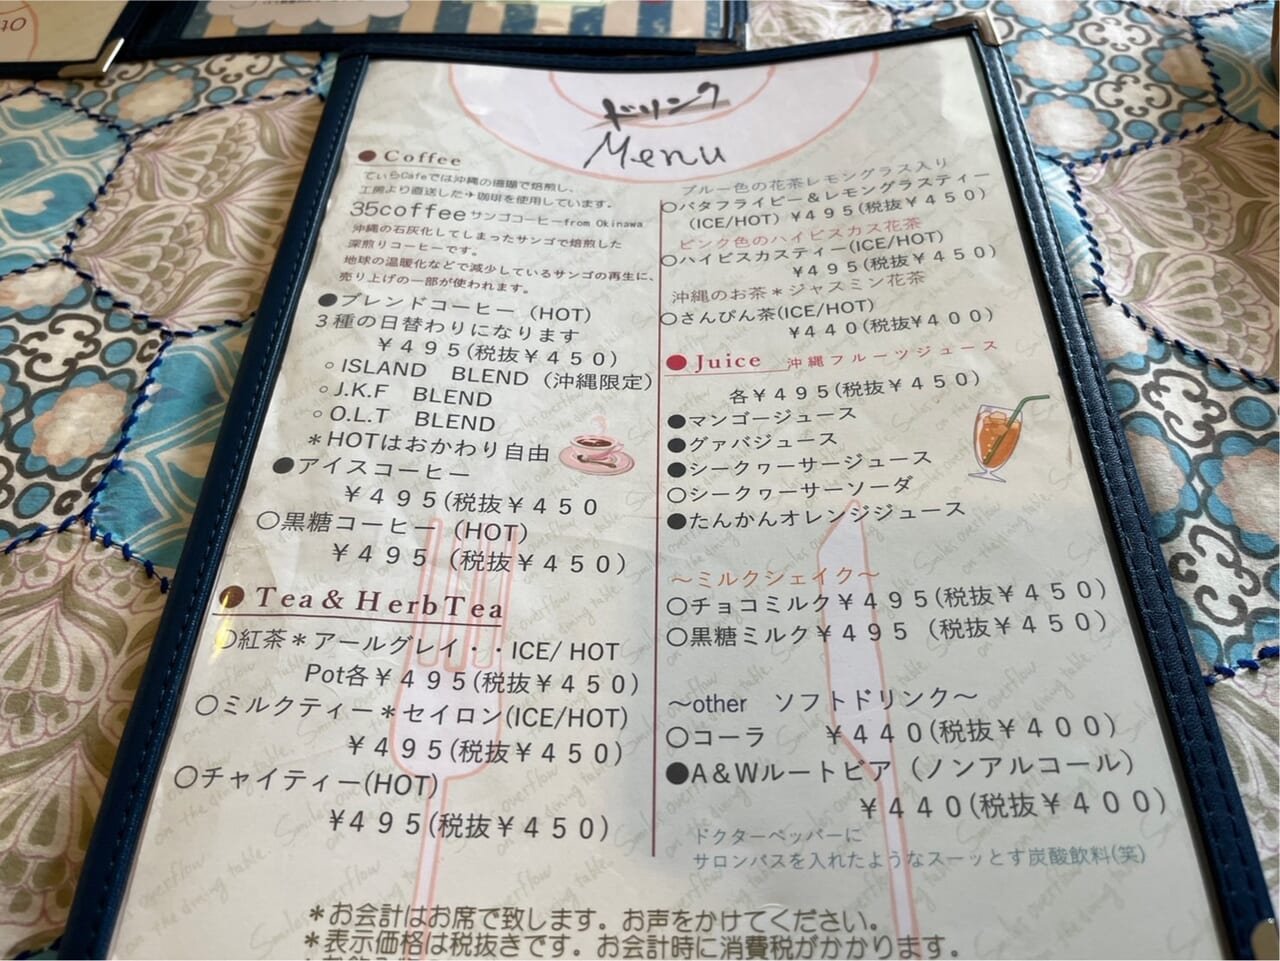 ドリンク
Menu
●Coffee
ていらCafeでは沖縄の珊瑚で焙煎し、
工房より直送した✈珈琲を使用しています。
35coffeeサンゴコーヒーfrom Okinawa
沖縄の石灰化してしまったサンゴで焙煎した
深煎りコーヒーです。
地球の温暖化などで減少しているサンゴの再生に、
売り上げの一部が使われます。
●ブレンドコーヒー (HOT)
３種の日替わりになります
￥４９５(税抜￥４５０)
○ISLAND BLEND（沖縄限定)
○J.K.F BLEND
○O.L.T BLEND
＊HOTはおかわり自由
●アイスコーヒー
￥４９５(税抜￥４５０
○黒糖コーヒー (HOT)
￥４９５ (税抜￥４５０)
●Tea＆HerbTea
○紅茶＊アールグレイ・・ICE/ HOT
Pot各￥４９５(税抜￥４５０)
○ミルクティー＊セイロン(ICE/HOT)
￥４９５(税抜￥４５０)
○チャイティー(HOT)
￥４９５(税抜￥４５０)
ブルー色の花茶レモングラス入り
○バタフライピー＆レモングラスティー
(ICE/HOT) ￥４９５(税抜￥４５０)
ピンク色のハイビスカス花茶
○ハイビスカスティー(ICE/HOT)
￥４９５(税抜￥４５０)
沖縄のお茶＊ジャスミン花茶
○さんぴん茶(ICE/HOT)
￥４４０(税抜￥４００)
●Juice 沖縄フルーツジュース
各￥４９５(税抜￥４５０)
●マンゴージュース
●グァバジュース
●シークヮーサージュース
○シークヮーサーソーダ
●たんかんオレンジジュース
～ミルクシェイク～
○チョコミルク￥４９５(税抜￥４５０)
○黒糖ミルク￥４９５ (税抜￥４５０)
～other ソフトドリンク～
○コーラ ￥４４０(税抜￥４００)
●A＆Wルートビア（ノンアルコール）
￥４４０(税抜￥４００)
ドクターペッパーに
サロンパスを入れたようなスーッとす炭酸飲料(笑)
＊お会計はお席で致します。お声をかけてください。
＊表示価格は税抜きです。お会計時に消費税がかかります。